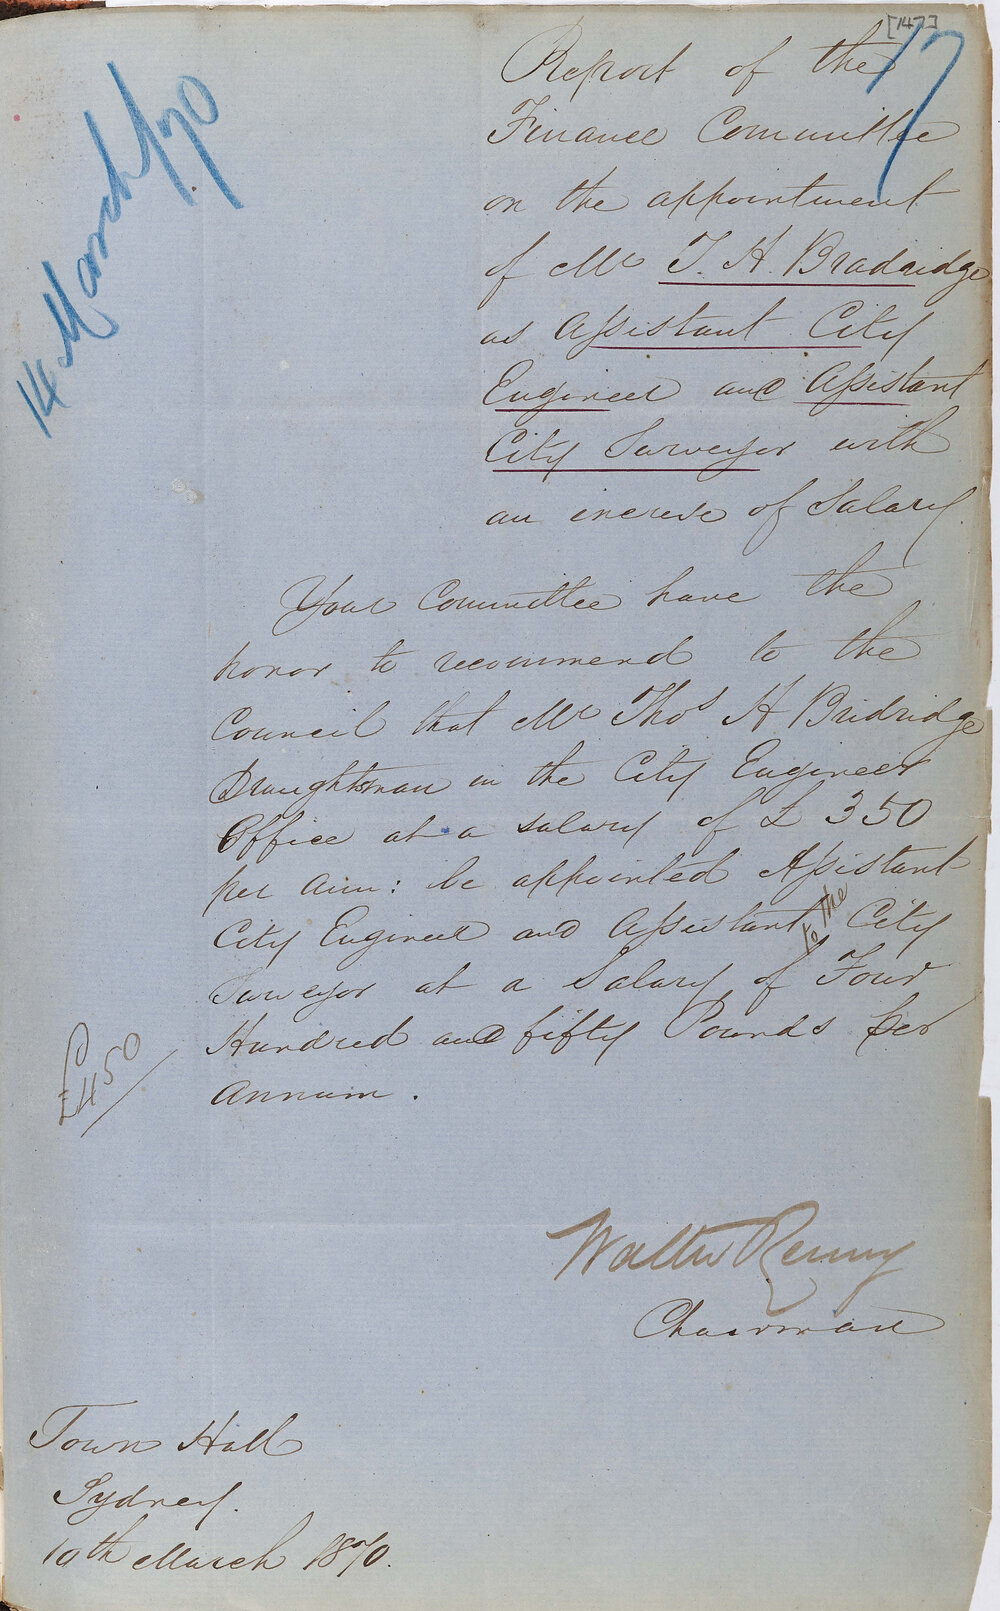 [147]
17
14 March/70
Report of the
Finance Committee
on the appointment
of Mr T. H. Bradridge
as Assistant City
Engineer and Assistant
City Surveyor with
an increse of Salary
Your Committee have the
honor to recommend to the
Council that Mr Thos H Bridridge
Draughtsman in the City Engineer
Office at a salary of £350
per Ann: be appointed Assistant
City Engineer and Assistant to the City
Surveyor at a Salary of Four
Hundred and fifty Pounds per
Annum.
£450/
Walter Renny
Chairman
Town Hall
Sydney.
10th March 1870.